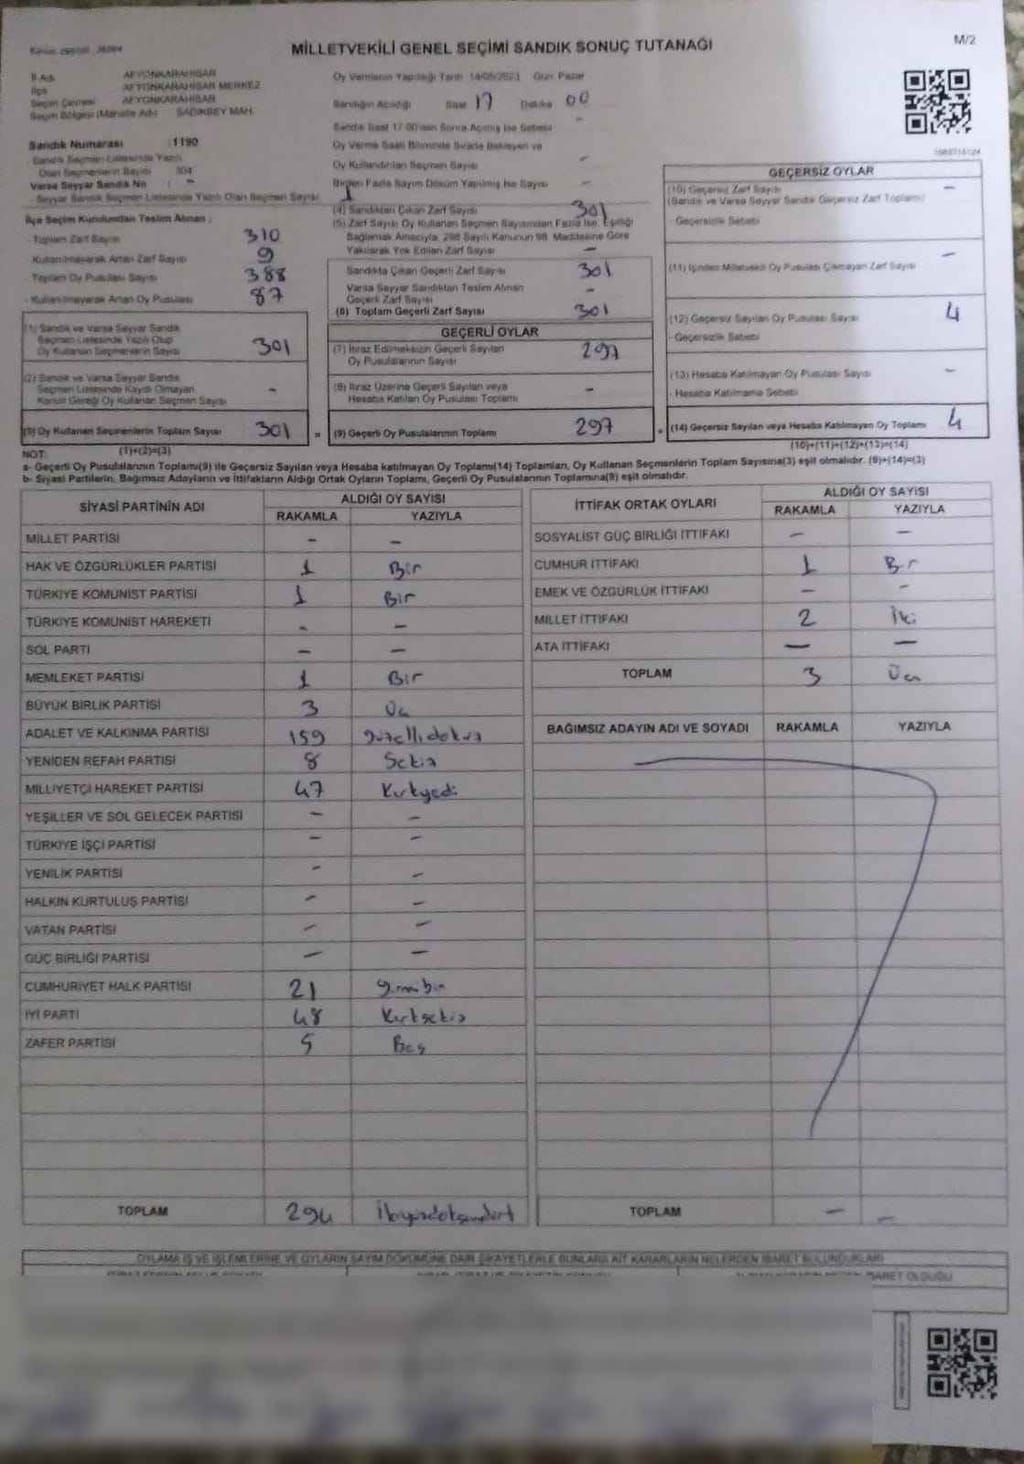 MİLLETVEKİLİ GENEL SEÇİMİ SANDIK SONUÇ TUTANAĞI
M/2
İl Adı AFYONKARAHİSAR
İlçe AFYONKARAHİSAR MERKEZ
Seçim Çevresi AFYONKARAHİSAR
Seçim Bölgesi (Mahalle Adı) SADIKBEY MAH.
Oy Vermenin Yapıldığı Tarih 14/05/2023 Gün Pazar
Sandığın Açıldığı Saat 17 Dakika 00
Sandık Saat 17:00'den Sonra Açılmış İse Sebebi -
Sandık Numarası :1190
Sandık Seçmen Listesinde Yazılı
Olan Seçmenlerin Sayısı 304
Varsa Seyyar Sandık No : -
Seyyar Sandık Seçmen Listesinde Yazılı Olan Seçmen Sayısı
Oy Verme Saati Bitiminde Sırada Bekleyen ve
Oy Kullandırılan Seçmen Sayısı -
Birden Fazla Sayım Döküm Yapılmış İse Sayısı -
İlçe Seçim Kurulundan Teslim Alınan :
- Toplam Zarf Sayısı 310
- Kullanılmayarak Artan Zarf Sayısı 9
- Toplam Oy Pusulası Sayısı 388
- Kullanılmayarak Artan Oy Pusulası 87
(1) Sandık ve Varsa Seyyar Sandık
Seçmen Listesinde Yazılı Olup
Oy Kullanan Seçmenlerin Sayısı 301
(2) Sandık ve Varsa Seyyar Sandık
Seçmen Listesinde Kaydı Olmayan
Kanun Gereği Oy Kullanan Seçmen Sayısı -
(3) Oy Kullanan Seçmenlerin Toplam Sayısı 301
(1)+(2)=(3)
(4) Sandıktan Çıkan Zarf Sayısı 301
(5) Zarf Sayısı Oy Kullanan Seçmen Sayısından Fazla İse, Eşitliği
Sağlamak Amacıyla, 298 Sayılı Kanunun 98. Maddesine Göre
Yakılarak Yok Edilen Zarf Sayısı -
Sandıkta Çıkan Geçerli Zarf Sayısı 301
Varsa Seyyar Sandıktan Teslim Alınan
Geçerli Zarf Sayısı -
(6) Toplam Geçerli Zarf Sayısı 301
GEÇERLİ OYLAR
(7) İtiraz Edilmeksizin Geçerli Sayılan
Oy Pusulalarının Sayısı 297
(8) İtiraz Üzerine Geçerli Sayılan veya
Hesaba Katılan Oy Pusulası Toplamı -
= (9) Geçerli Oy Pusulalarının Toplamı 297
GEÇERSİZ OYLAR
(10) Geçersiz Zarf Sayısı -
(Sandık ve Varsa Seyyar Sandık Geçersiz Zarf Toplamı)
Geçersizlik Sebebi
(11) İçinden Milletvekili Oy Pusulası Çıkmayan Zarf Sayısı -
(12) Geçersiz Sayılan Oy Pusulası Sayısı 4
- Geçersizlik Sebebi
(13) Hesaba Katılmayan Oy Pusulası Sayısı -
- Hesaba Katılmama Sebebi
+ (14) Geçersiz Sayılan veya Hesaba Katılmayan Oy Toplamı 4
(10)+(11)+(12)+(13)=(14)
NOT:
a- Geçerli Oy Pusulalarının Toplamı(9) ile Geçersiz Sayılan veya Hesaba katılmayan Oy Toplamı(14) Toplamları, Oy Kullanan Seçmenlerin Toplam Sayısına(3) eşit olmalıdır. (9)+(14)=(3)
b- Siyasi Partilerin, Bağımsız Adayların ve İttifakların Aldığı Ortak Oyların Toplamı, Geçerli Oy Pusulalarının Toplamına(9) eşit olmalıdır.
SİYASİ PARTİNİN ADI ALDIĞI OY SAYISI
RAKAMLA YAZIYLA
MİLLET PARTİSİ - -
HAK VE ÖZGÜRLÜKLER PARTİSİ 1 Bir
TÜRKİYE KOMÜNİST PARTİSİ 1 Bir
TÜRKİYE KOMÜNİST HAREKETİ - -
SOL PARTİ - -
MEMLEKET PARTİSİ 1 Bir
BÜYÜK BİRLİK PARTİSİ 3 Üç
ADALET VE KALKINMA PARTİSİ 159 yüzellidokuz
YENİDEN REFAH PARTİSİ 8 Sekiz
MİLLİYETÇİ HAREKET PARTİSİ 47 Kırkyedi
YEŞİLLER VE SOL GELECEK PARTİSİ - -
TÜRKİYE İŞÇİ PARTİSİ - -
YENİLİK PARTİSİ - -
HALKIN KURTULUŞ PARTİSİ - -
VATAN PARTİSİ - -
GÜÇ BİRLİĞİ PARTİSİ - -
CUMHURİYET HALK PARTİSİ 21 yirmibir
İYİ PARTİ 48 Kırksekiz
ZAFER PARTİSİ 5 Beş
TOPLAM 294 ikiyüzdoksandört
İTTİFAK ORTAK OYLARI ALDIĞI OY SAYISI
RAKAMLA YAZIYLA
SOSYALİST GÜÇ BİRLİĞİ İTTİFAKI - -
CUMHUR İTTİFAKI 1 Bir
EMEK VE ÖZGÜRLÜK İTTİFAKI - -
MİLLET İTTİFAKI 2 İki
ATA İTTİFAKI - -
TOPLAM 3 Üç
BAĞIMSIZ ADAYIN ADI VE SOYADI RAKAMLA YAZIYLA
TOPLAM - -
OYLAMA İŞ VE İŞLEMLERİNE VE OYLARIN SAYIM DÖKÜMÜNE DAİR ŞİKAYETLERLE BUNLARA AİT KARARLARIN NELERDEN İBARET BULUNDUKLARI